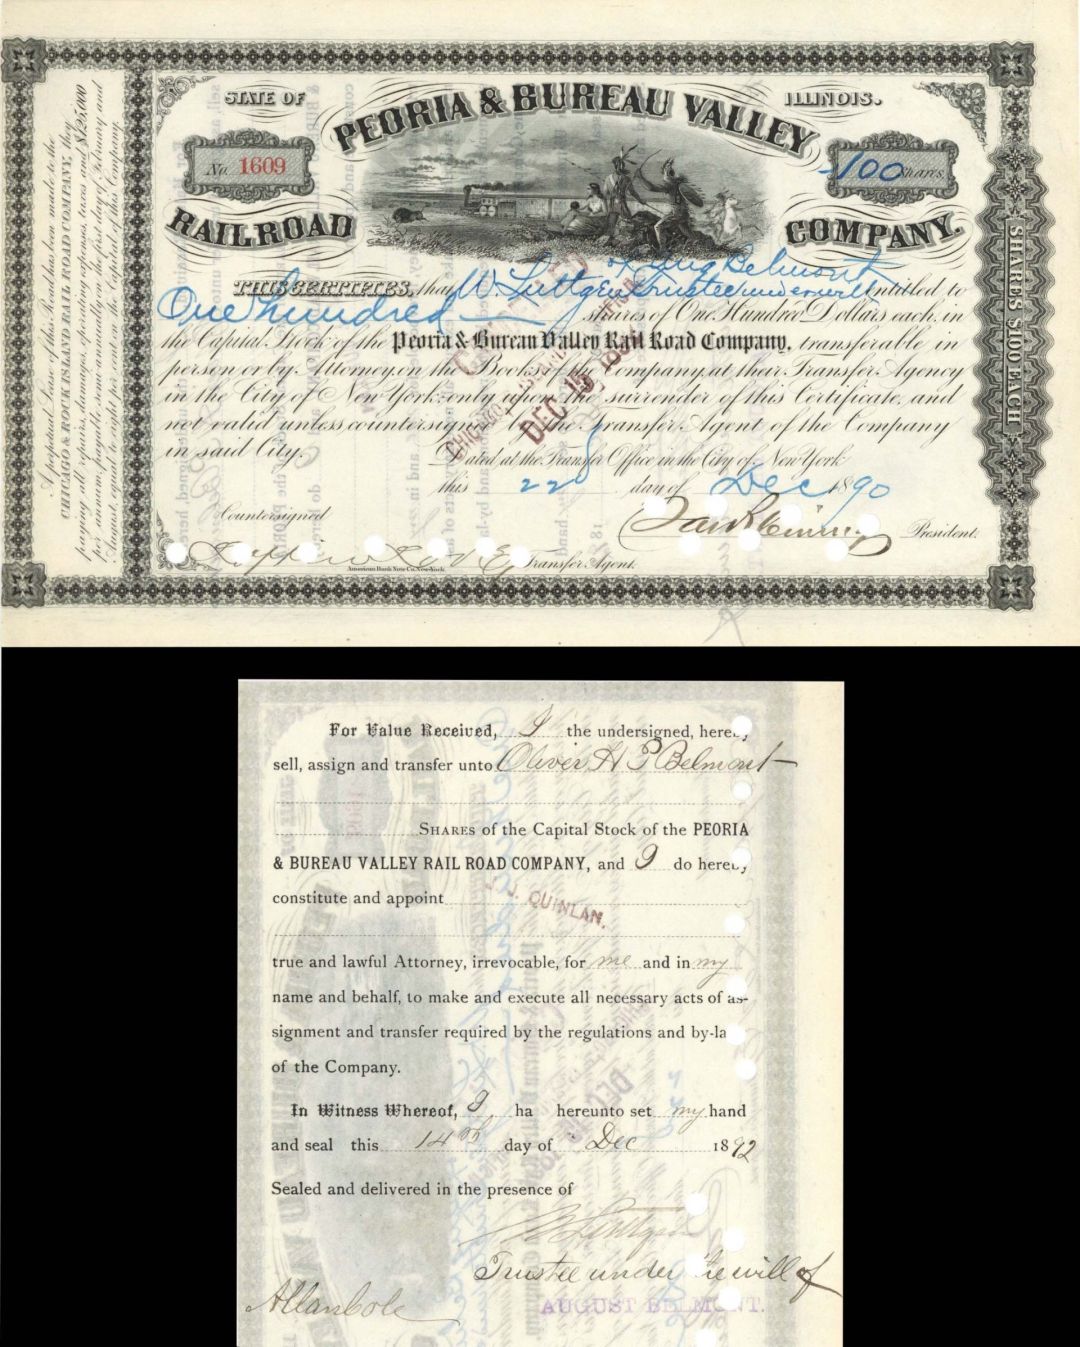 STATE OF
PEORIA & BUREAU VALLEY
ILLINOIS.
No. 1609
100 Shares
RAILROAD
COMPANY.
of Aug Belmont
THIS CERTIFIES, that W. Luttgen Trustee under will entitled to
One hundred shares of One Hundred Dollars each, in
the Capital Stock of the Peoria & Bureau Valley Rail Road Company, transferable in
person or by Attorney, on the Books of the Company, at their Transfer Agency
in the City of New York, only upon the surrender of this Certificate, and
not valid unless countersigned by the Transfer Agent of the Company
in said City.
Dated at the Transfer Office in the City of New York
this 22d day of Dec 1890
Countersigned
President.
Transfer Agent.
American Bank Note Co. New York.
A perpetual Lease of this Road has been made to the
CHICAGO & ROCK ISLAND RAIL ROAD COMPANY, they
paying all repairs, damages, operating expenses, taxes and $125,000
per annum, payable semi-annually on the first days of February and
August, equal to eight per cent. on the Capital of this Company.
SHARES $100 EACH
DEC 15
For Value Received, I the undersigned, hereby
sell, assign and transfer unto Oliver H P Belmont
SHARES of the Capital Stock of the PEORIA
& BUREAU VALLEY RAIL ROAD COMPANY, and I do hereby
constitute and appoint
J. QUINLAN.
true and lawful Attorney, irrevocable, for me and in my
name and behalf, to make and execute all necessary acts of as-
signment and transfer required by the regulations and by-la
of the Company.
In Witness Whereof, I ha hereunto set my hand
and seal this 14th day of Dec 1892
Sealed and delivered in the presence of
W Luttgen
Trustee under the will of
Allan Cole
AUGUST BELMONT.